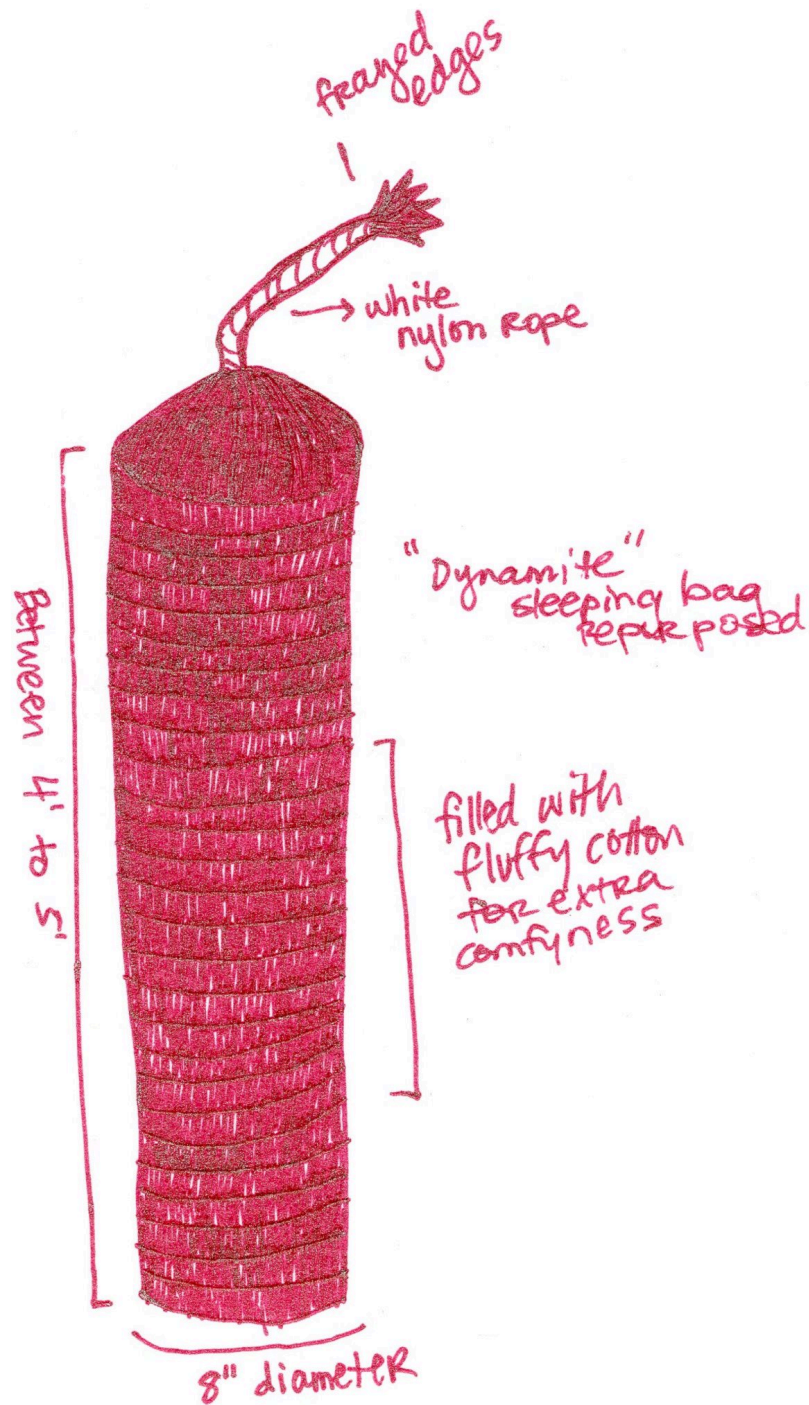 frayed
edges
white
nylon rope
"Dynamite"
sleeping bag
repurposed
Between 4' to 5'
filled with
fluffy cotton
for extra
comfyness
8" diameter